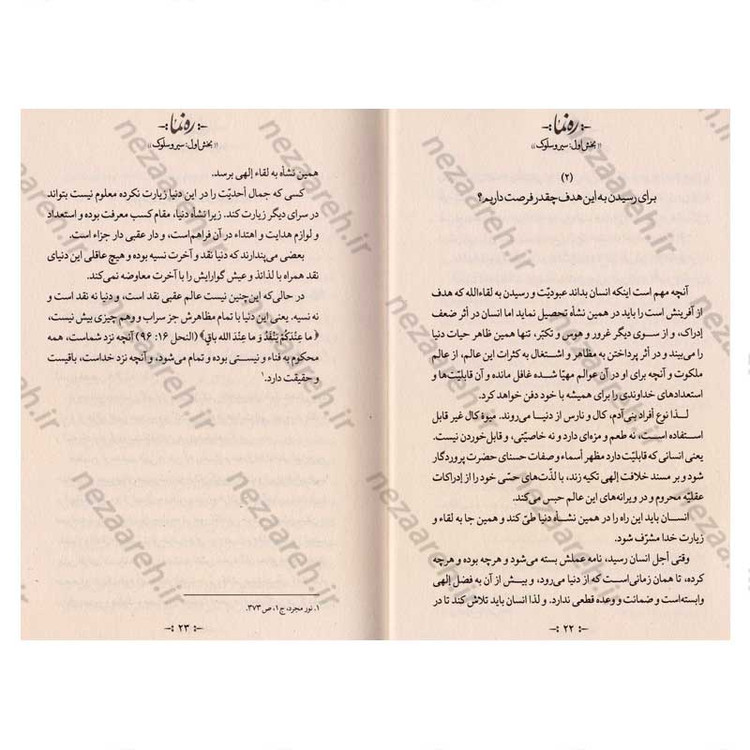 ره‌نما
«بخش اول: سیر و سلوک»
(۲)
برای رسیدن به این هدف چقدر فرصت داریم؟
آنچه مهم است اینکه انسان بداند عبودیّت و رسیدن به لقاءالله که هدف
از آفرینش است را باید در همین نشأه تحصیل نماید اما انسان در أثر ضعف
إدراک، و از سوی دیگر غرور و هوس و تکبّر، تنها همین ظاهر حیات دنیا
را می‌بیند و در أثر پرداختن به مظاهر و اشتغال به کثرات این عالم، از عالم
ملکوت و آنچه برای او در آن عوالم مهیّا شده غافل مانده و آن قابلیّت‌ها و
استعدادهای خداوندی را برای همیشه با خود دفن خواهد کرد.
لـذا نوع أفراد بنی‌آدم، کال و نارس از دنیـا می‌روند. میوۀ کال غیر قابل
استفاده اسـت، نه طعم و مزه‌ای دارد و نه خاصیّتی، و قابل خوردن نیست.
یعنی انسانی که قابلیّت دارد مظهر أسماء و صفات حسنای حضرت پروردگار
شود و بر مسند خلافت إلهی تکیه زند، با لذّت‌های حسّی خود را از إدراکات
عقلیّه محروم و در ویرانه‌های این عالم حبس می‌کند.
انسـان باید این راه را در همین نشـأه دنیا طیّ کند و همین جا به لقاء و
زیارت خدا مشرّف شود.
وقتی أجل انسان رسید، نامه عملش بسته می‌شود و هرچه بوده و هرچه
کرده، تا همان زمانی‌است که از دنیا می‌رود، و بیـش از آن به فضل إلهی
وابسته‌است و ضمانت و وعده قطعی ندارد. و لذا انسان باید تلاش کند تا در
۲۲
ره‌نما
«بخش اول: سیر و سلوک»
همین نشأه به لقاء إلهی برسد.
کسی که جمال أحدیّت را در این دنیا زیارت نکرده معلوم نیست بتواند
در سرای دیگر زیارت کند. زیرا نشأه دنیا، مقام کسب معرفت بوده و استعداد
و لوازم هدایت و اهتداء در آن فراهم‌است، و دار عقبی دار جزاء است.
بعضی می‌پندارند که دنیا نقد و آخرت نسیه بوده و هیچ عاقلی این دنیای
نقد همراه با لذائذ و عیش گوارایش را با آخرت معاوضه نمی‌کند.
در حالی‌که این‌چنین نیست عالم عقبی نقد است، و دنیا نه نقد است و
نه نسیه. یعنی این دنیا با تمام مظاهرش جز سراب و وهم چیزی بیش نیست،
﴿ما عِنْدَکُمْ یَنْفَدُ وَ ما عِندَ الله باقٍ﴾ (النحل ۱۶: ۹۶) آنچه نزد شماست، همه
محکوم به فناء و نیستی بوده و تمام می‌شود، و آنچه نزد خداست، باقیست
و حقیقت دارد.۱
۱. نور مجرد، ج ۱، ص ۳۷۳.
۲۳
nezaareh.ir